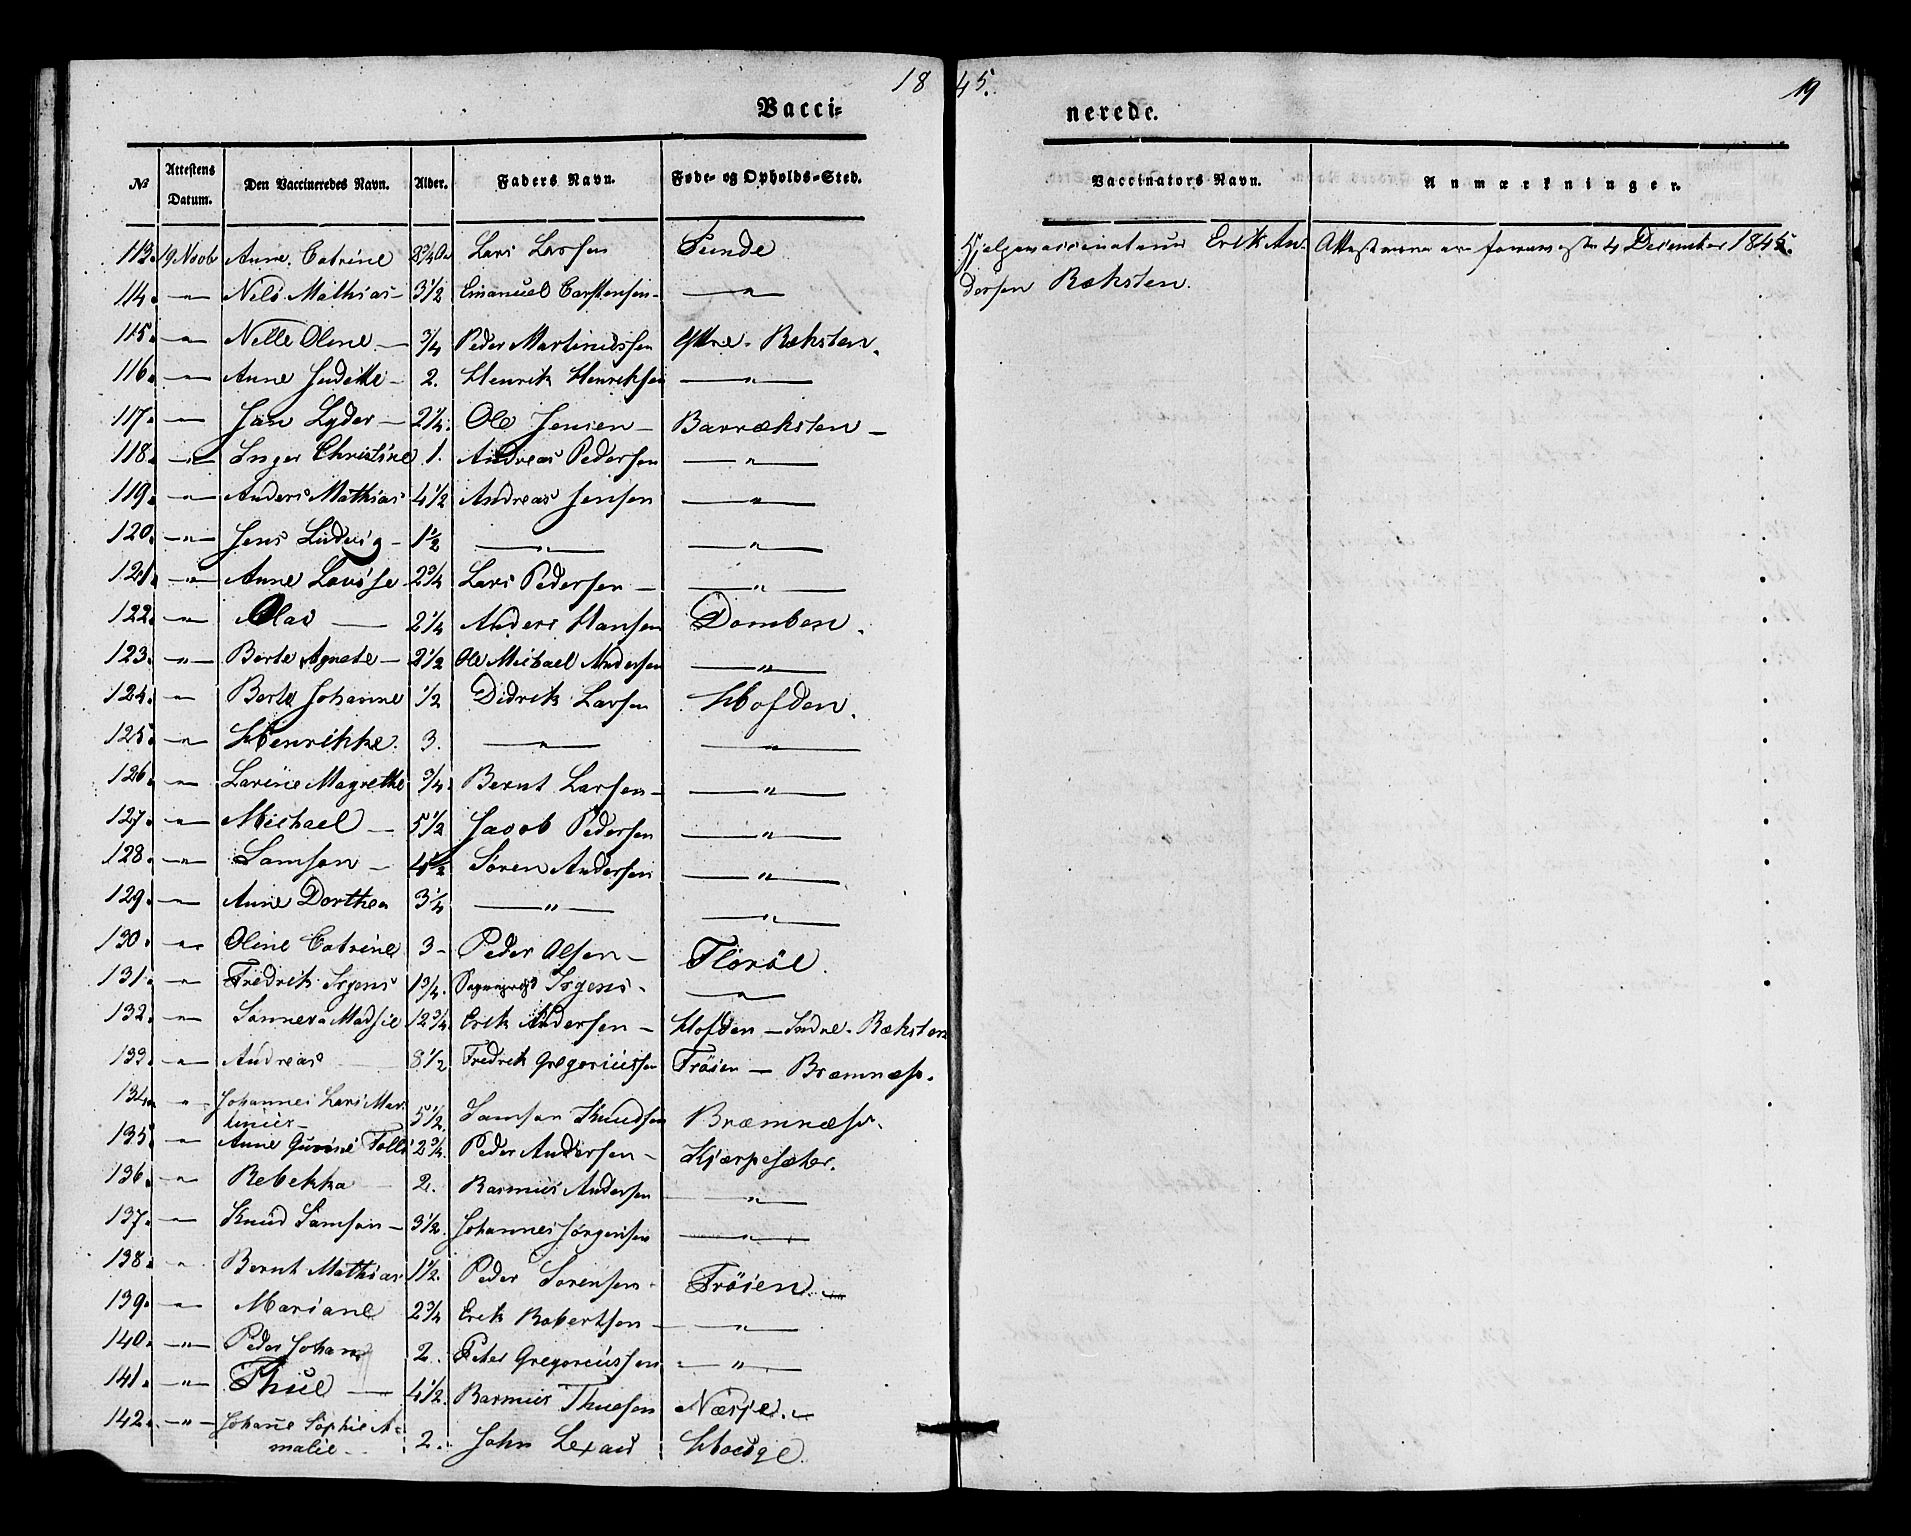 18 45. 19
Vacci= nerede.
№ Attestens Datum. Den Vaccineredes Navn. Alder. Faders Navn. Føde- og Opholds-Sted. Vaccinators Navn. Anmærkninger.
113. 19 Novb Anne Catrine 8 3/4 Lars Larsen Sunde Hjelpevaccinateur Erik An- Attesterne ere 4 December 1845.
114. — " — Nils Mathias — 3 1/2 Emanuel Carstensen — — " — dersen Ræksten.
115. — " — Nille Oline — 3/4 Peder Martinussen Yttre Ræksten.
116. — " — Anne Juditte — 2. Henrik Henriksen — " —
117. — " — Jan Lyder — 2 1/4. Ole Jensen — Barræksten —
118. — " — Inger Christine 1. Andreas Pedersen — " —
119. — " — Anders Mathias 4 1/2 Andreas Jensen — " —
120. — " — Jens Ludvig — 1 1/2 — " — — " —
121. — " — Anne Lovise 2 3/4 Lars Pedersen — — " —
122. — " — Olav — 2 1/4 Anders Hansen Domben.
123. — " — Berte Agnete — 2 1/2 Ole Michael Andersen — " —
124. — " — Berte Johanne 1/2 Didrik Larsen Hofden.
125. — " — Henrikke. 3. — " — — " —
126. — " — Larine Magrethe 3/4. Bernt Larsen — — " —
127. — " — Michael — 5 1/2 Jacob Pedersen — " —
128. — " — Samson — 4 1/2 Søren Andersen — " —
129. — " — Anne Dorthea 3 1/4 — " — — " —
130. — " — Oline Catrine 3 — Peder Olsen — Floröe.
131. — " — Fredrik Irgens 1 3/4. Irgens — — " —
132. — " — Sönneva Madsie 12 3/4 Erik Andersen — Hofden — Indre Ræksten
133. — " — Andreas 8 1/2 Fredrik Gregoriussen Tröien — Bræmnæs.
134. — " — Johannes Lars Mar-
tinus — 5 1/2. Samson Knudsen Bræmnæs.
135. — " — Anne Gurine 2 3/4. Peder Andersen — Kjærpesæter.
136. — " — Rebekka — 2. Rasmus Andersen — " —
137. — " — Knud Samson — 3 1/2. Johannes Jörgensen — " —
138. " Bernt Mathias 1 1/2. Peder Sorensen — Tröien —
139. — " — Mariane 2 3/4 Erik Robertsen — — " —
140. — " — Peder Johan 2. Peter Gregoriussen — " —
141. — " — Thue — 4 1/2. Rasmus Thuesen Næsje. —
142. — " — Johane Sophie A-
malie — 2. John Lexau